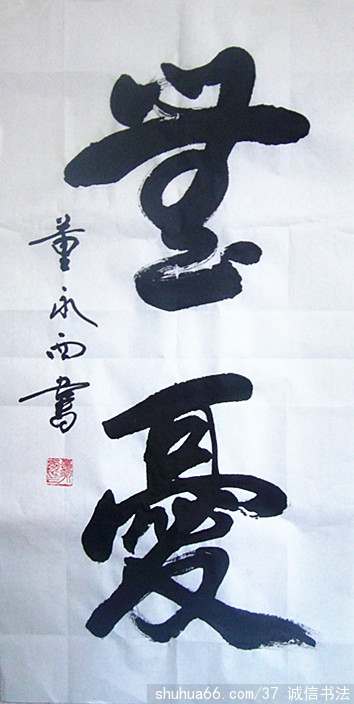 無憂
董永西書
shuhua66.com/37 诚信书法